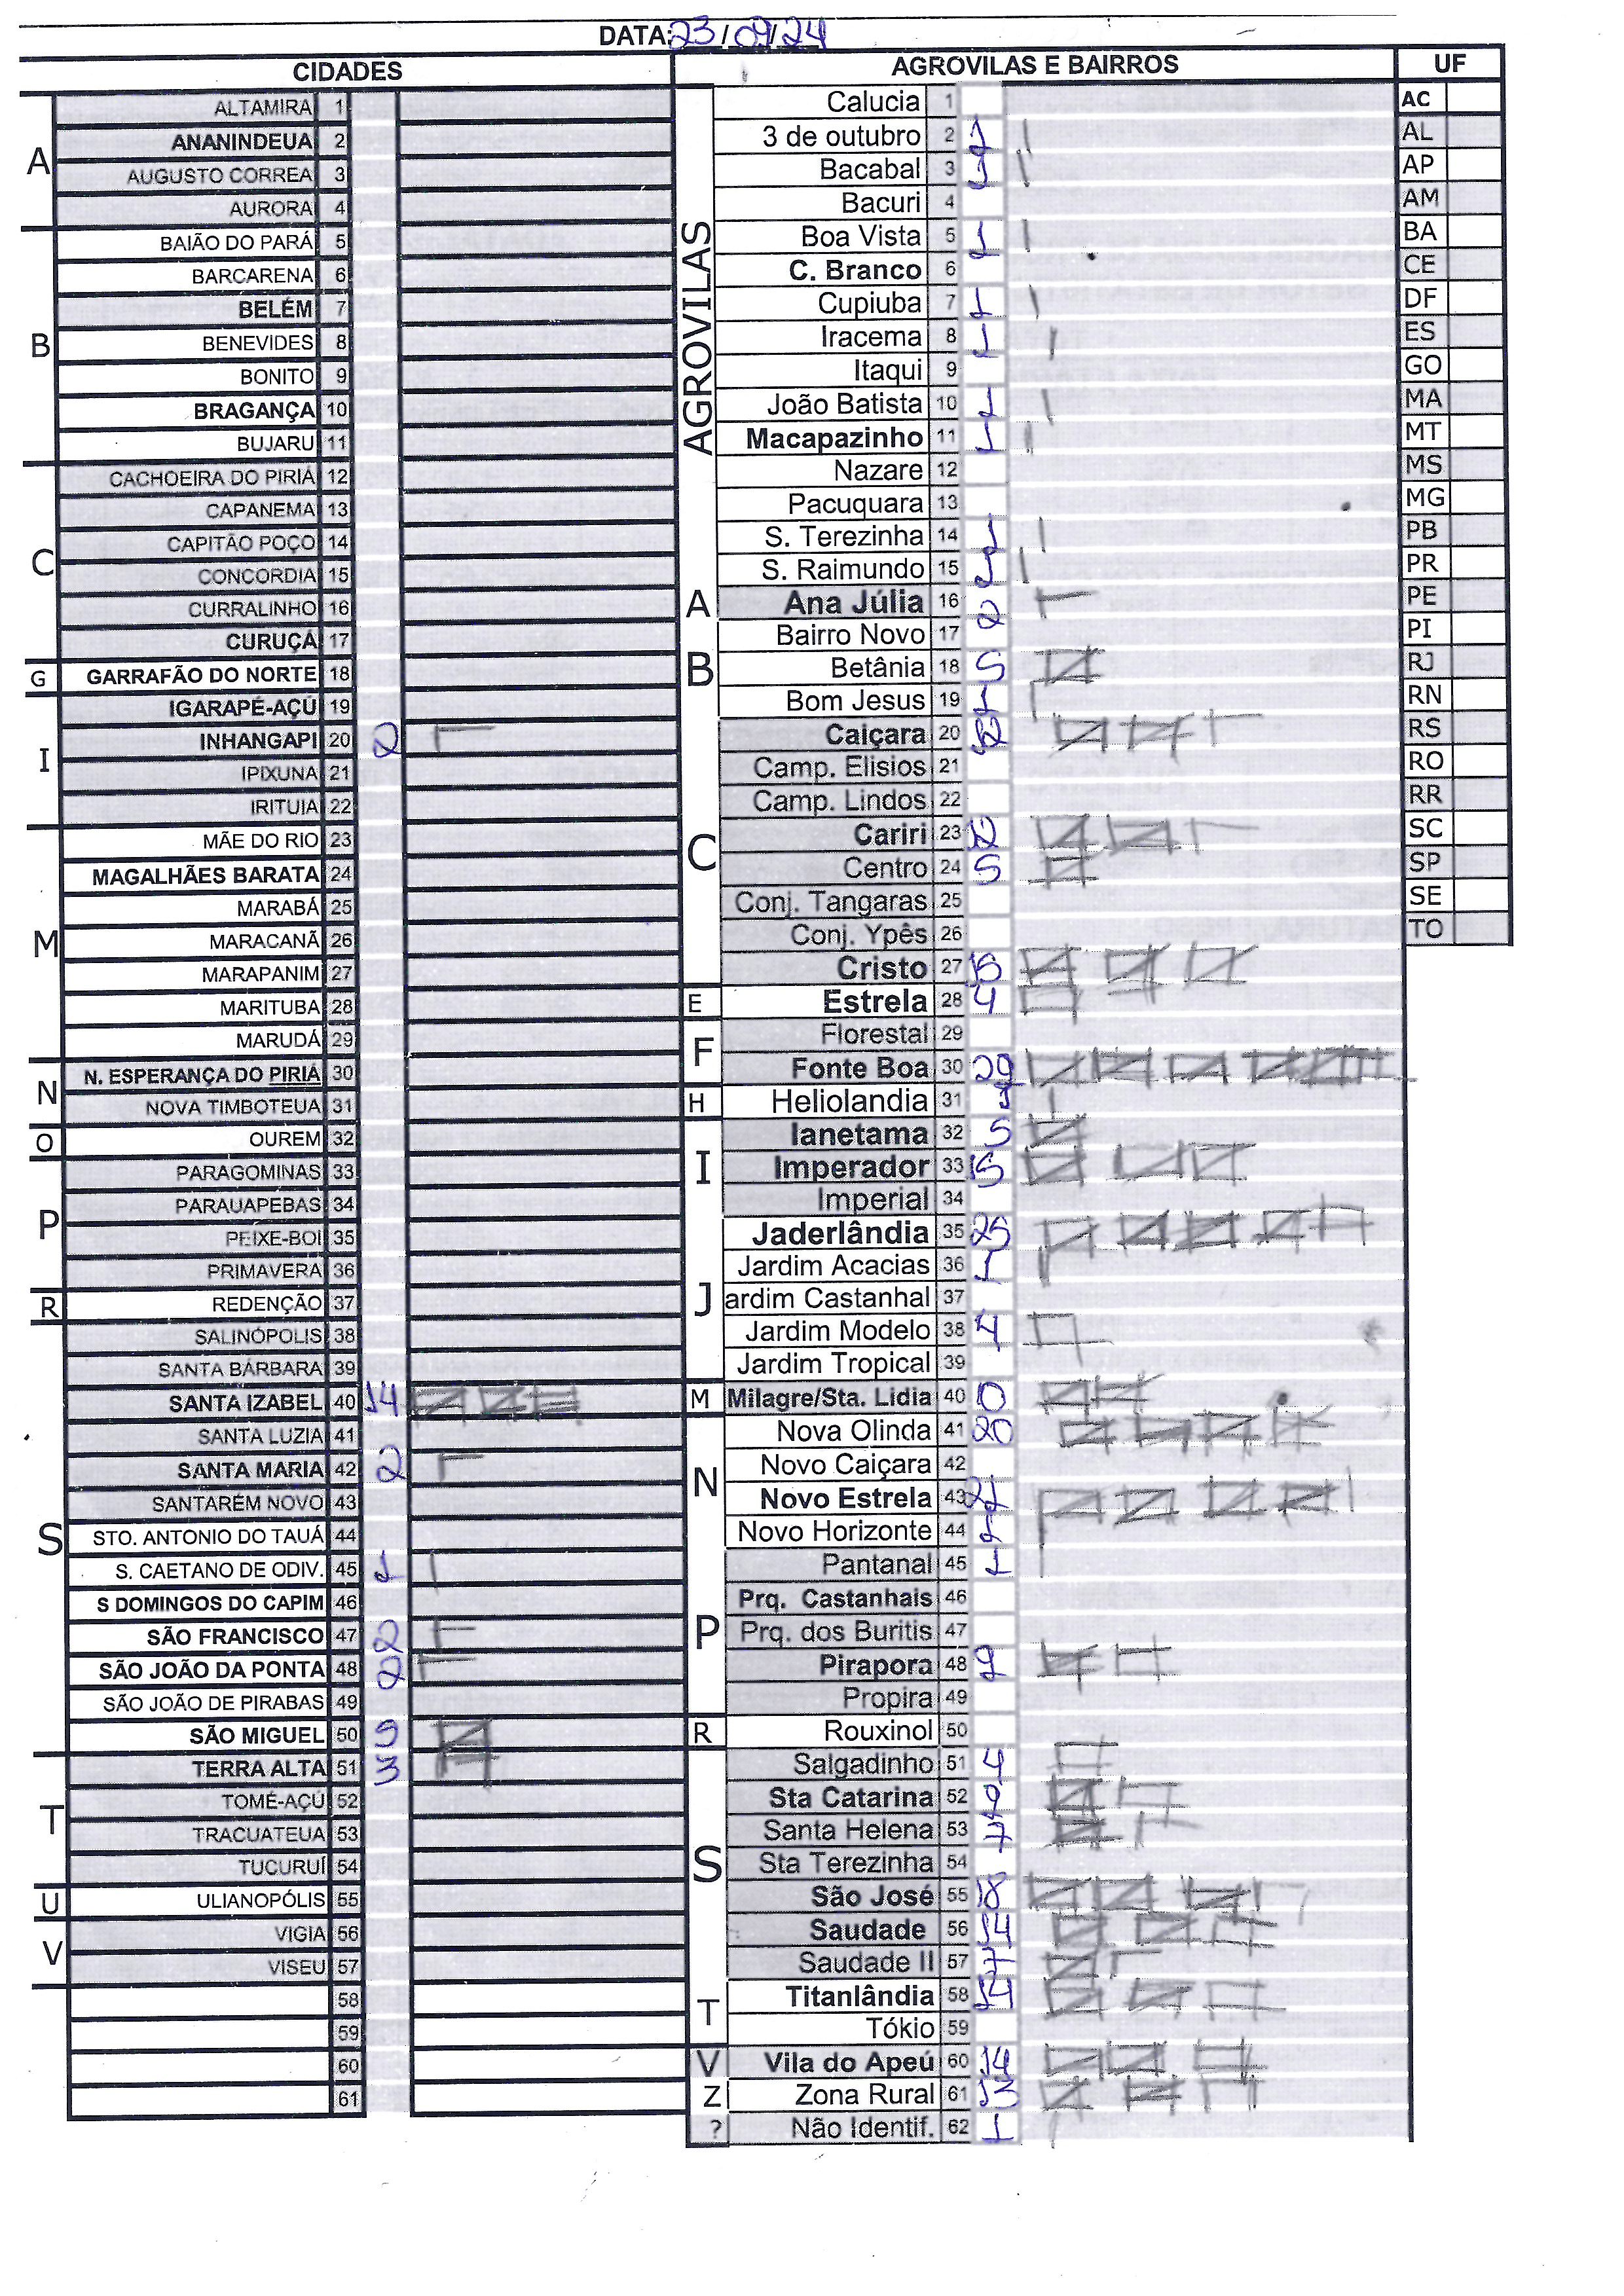 DATA: 23/09/24
CIDADES
A
ALTAMIRA 1
ANANINDEUA 2
AUGUSTO CORREA 3
AURORA 4
B
BAIÃO DO PARÁ 5
BARCARENA 6
BELÉM 7
BENEVIDES 8
BONITO 9
BRAGANÇA 10
BUJARU 11
C
CACHOEIRA DO PIRIÁ 12
CAPANEMA 13
CAPITÃO POÇO 14
CONCORDIA 15
CURRALINHO 16
CURUÇÁ 17
G
GARRAFÃO DO NORTE 18
I
IGARAPÉ-AÇÚ 19
INHANGAPI 20 2
IPIXUNA 21
IRITUIA 22
M
MÃE DO RIO 23
MAGALHÃES BARATA 24
MARABÁ 25
MARACANÃ 26
MARAPANIM 27
MARITUBA 28
MARUDÁ 29
N
N. ESPERANÇA DO PIRIÁ 30
NOVA TIMBOTEUA 31
O
OUREM 32
P
PARAGOMINAS 33
PARAUAPEBAS 34
PEIXE-BOI 35
PRIMAVERA 36
R
REDENÇÃO 37
S
SALINÓPOLIS 38
SANTA BÁRBARA 39
SANTA IZABEL 40 14
SANTA LUZIA 41
SANTA MARIA 42 2
SANTARÉM NOVO 43
STO. ANTONIO DO TAUÁ 44
S. CAETANO DE ODIV. 45 1
S DOMINGOS DO CAPIM 46
SÃO FRANCISCO 47 2
SÃO JOÃO DA PONTA 48 2
SÃO JOÃO DE PIRABAS 49
SÃO MIGUEL 50 5
T
TERRA ALTA 51 3
TOMÉ-AÇÚ 52
TRACUATEUA 53
TUCURUÍ 54
U
ULIANOPÓLIS 55
V
VIGIA 56
VISEU 57
58
59
60
61
AGROVILAS E BAIRROS
AGROVILAS
Calucia 1
3 de outubro 2 1
Bacabal 3 1
Bacuri 4
Boa Vista 5 1
C. Branco 6
Cupiuba 7 1
Iracema 8 1
Itaqui 9
João Batista 10 1
Macapazinho 11 1
Nazare 12
Pacuquara 13
S. Terezinha 14 1
S. Raimundo 15 1
A
Ana Júlia 16 2
B
Bairro Novo 17
Betânia 18 5
Bom Jesus 19 1
C
Caiçara 20 12
Camp. Elisios 21
Camp. Lindos 22
Cariri 23 12
Centro 24 5
Conj. Tangaras 25
Conj. Ypês 26
Cristo 27 15
E
Estrela 28 4
F
Florestal 29
Fonte Boa 30 29
H
Heliolandia 31 1
I
Ianetama 32 5
Imperador 33 15
Imperial 34
J
Jaderlândia 35 25
Jardim Acacias 36 1
ardim Castanhal 37
Jardim Modelo 38 4
Jardim Tropical 39
M
Milagre/Sta. Lidia 40
N
Nova Olinda 41 20
Novo Caiçara 42
Novo Estrela 43 21
Novo Horizonte 44 1
P
Pantanal 45 1
Prq. Castanhais 46
Prq. dos Buritis 47
Pirapora 48 9
Propira 49
R
Rouxinol 50
S
Salgadinho 51 4
Sta Catarina 52 9
Santa Helena 53 7
Sta Terezinha 54
São José 55 18
Saudade 56 14
Saudade II 57 7
T
Titanlândia 58 14
Tókio 59
V
Vila do Apeú 60 14
Z
Zona Rural 61 13
?
Não Identif. 62 1
UF
AC
AL
AP
AM
BA
CE
DF
ES
GO
MA
MT
MS
MG
PB
PR
PE
PI
RJ
RN
RS
RO
RR
SC
SP
SE
TO